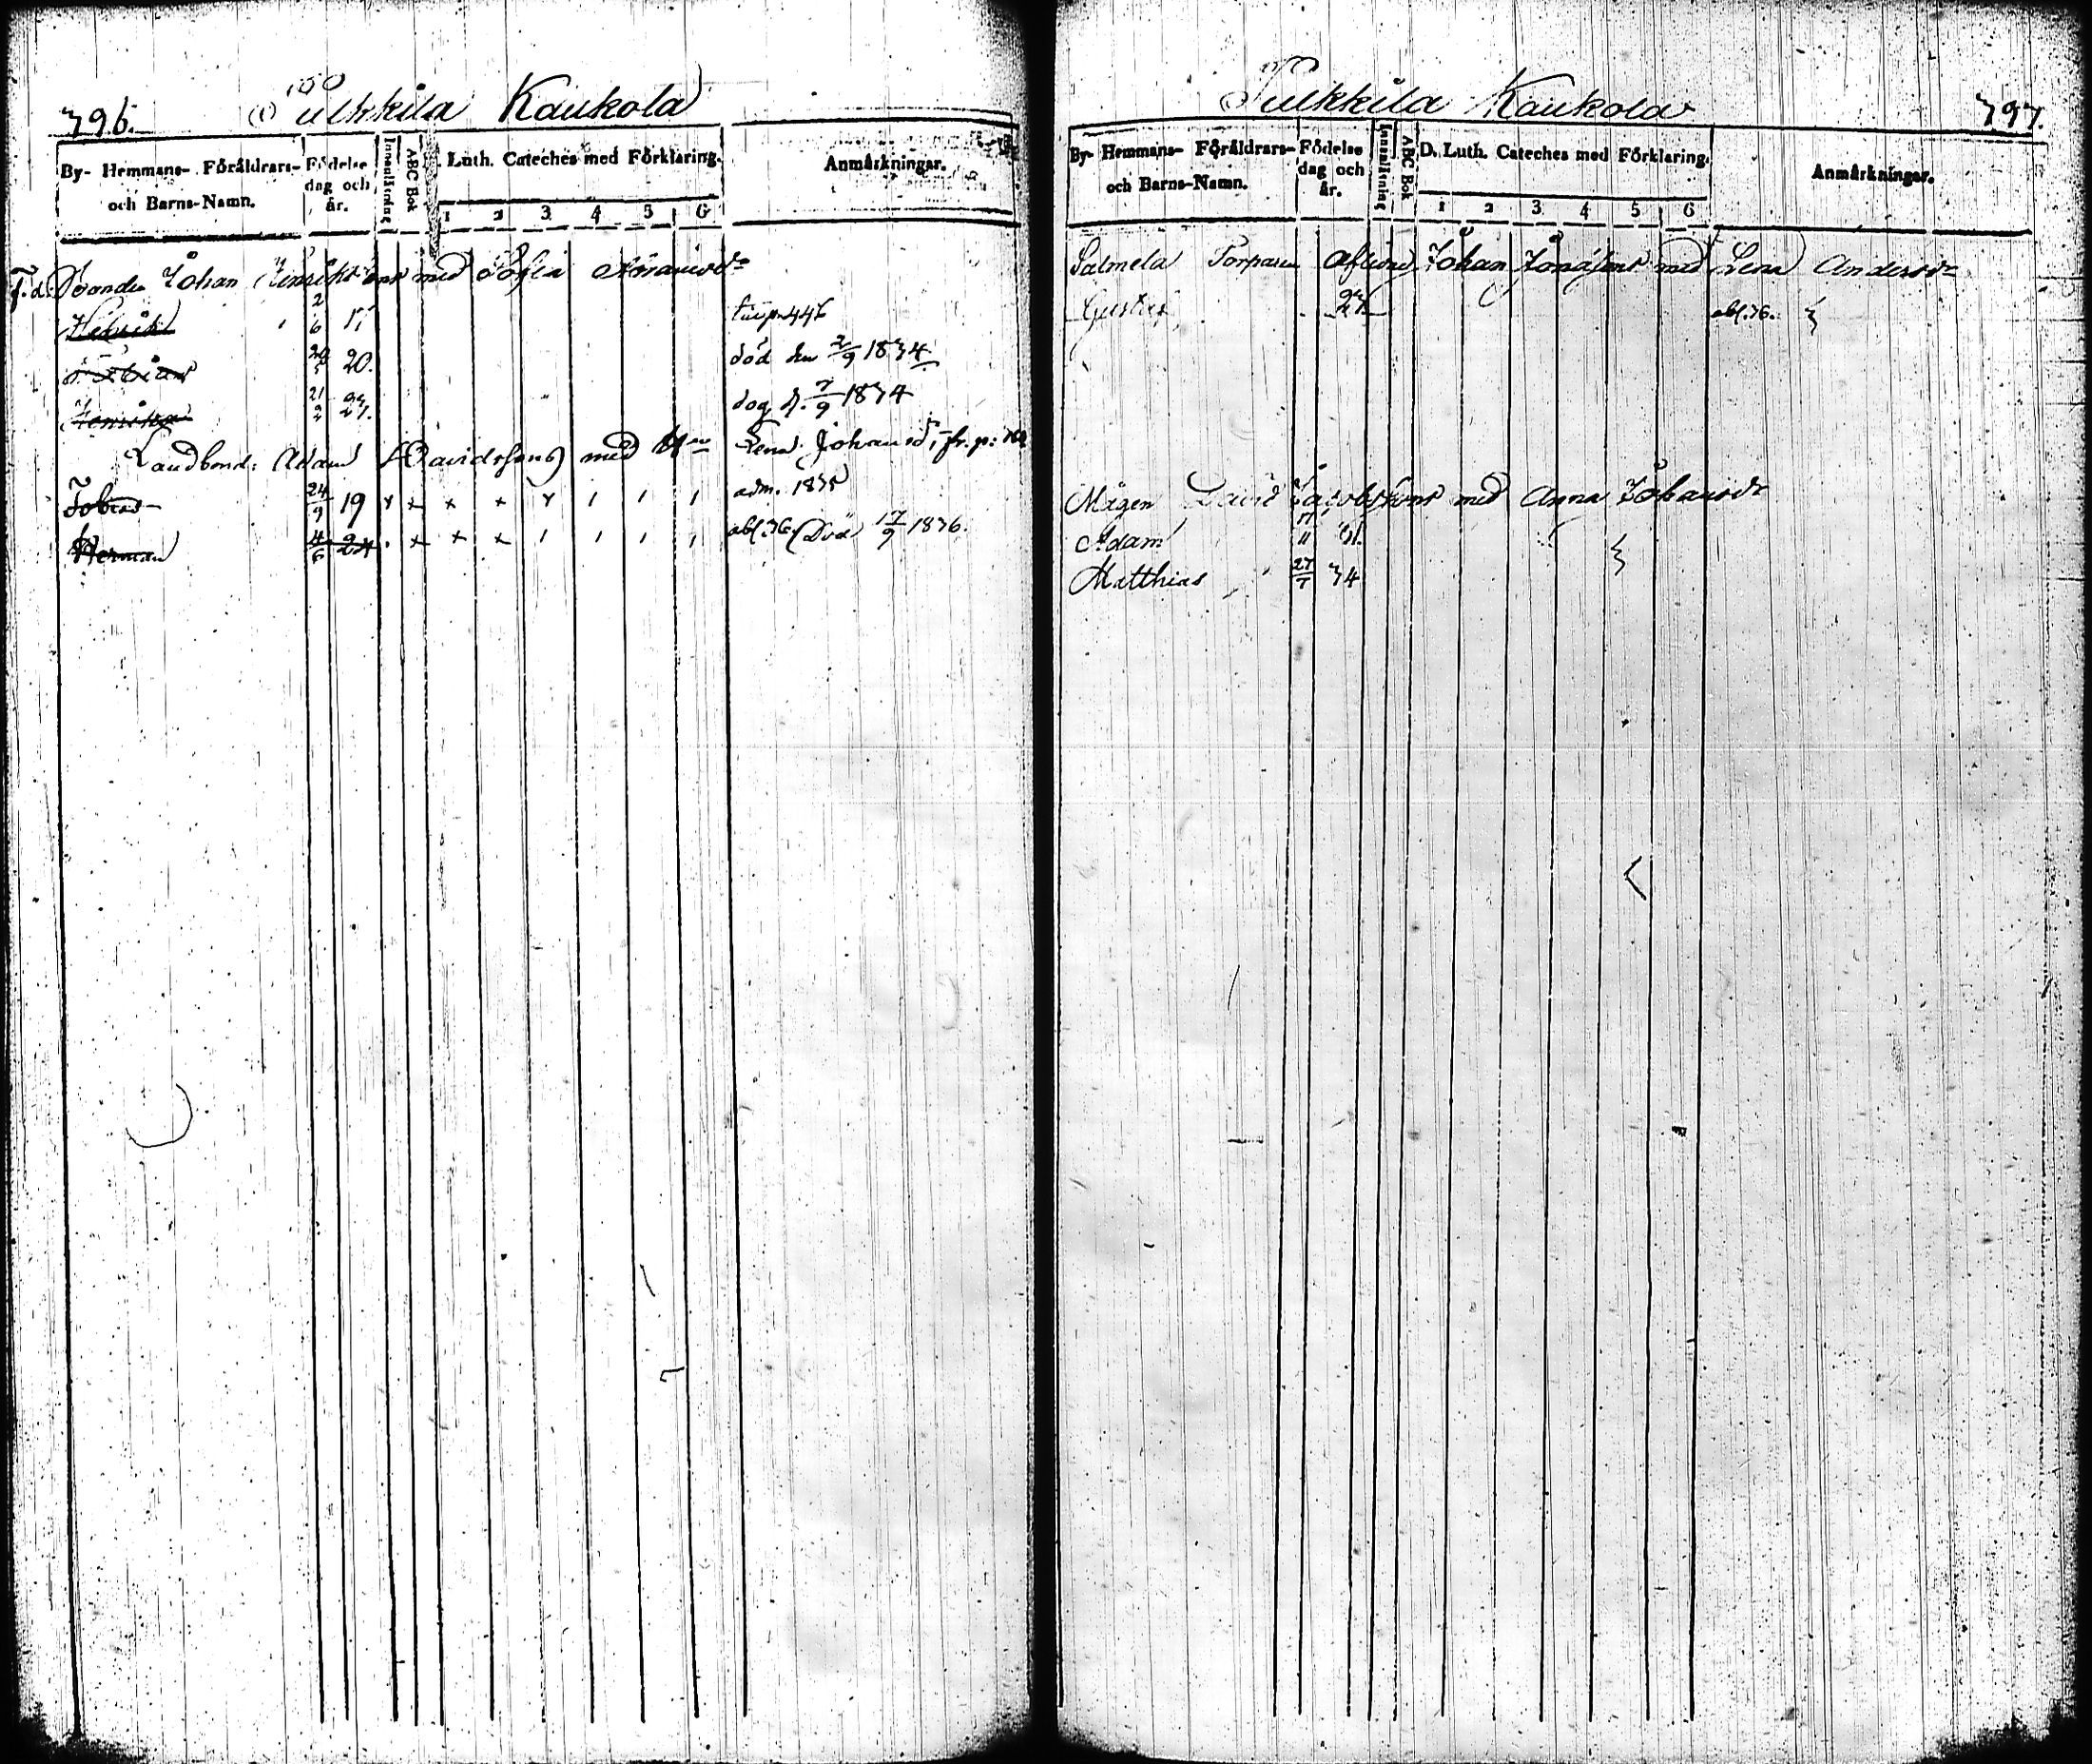 796.
Pulkkila Kaukola
By- Hemmans- Föräldrars- och Barns-Namn. Födelse dag och år. Innanläsning ABC Bok Luth. Cateches med Förklaring. 1 2 3 4 5 6 Anmärkningar.
F.d. Bonden Johan Henrikssons med Sofia
Henrik 2/6 17
20/5 20. död den 2/9 1834
Henrika 21/2 27. dog d. 7/9 1834
Landbond: Adam Davidssons med Lena Johansd:r fr. p:
Tobias 24/9 19 adm. 1835
Herman 4/6 24 abs. 36. (Död 17/9 1836.
797.
Pulkkila Kaukola
By- Hemmans- Föräldrars- och Barns-Namn. Födelse dag och år. Innanläsning ABC Bok D. Luth. Cateches med Förklaring. 1 2 3 4 5 6 Anmärkningar.
Salmela Torparen aflidne Johan Jonassons med Lena Andersd:r
Gustaf 27 abs. 36.
Mågen David Jacobssons med Anna Johansd:r
Adam 17/11 31.
Matthias 27/7 34